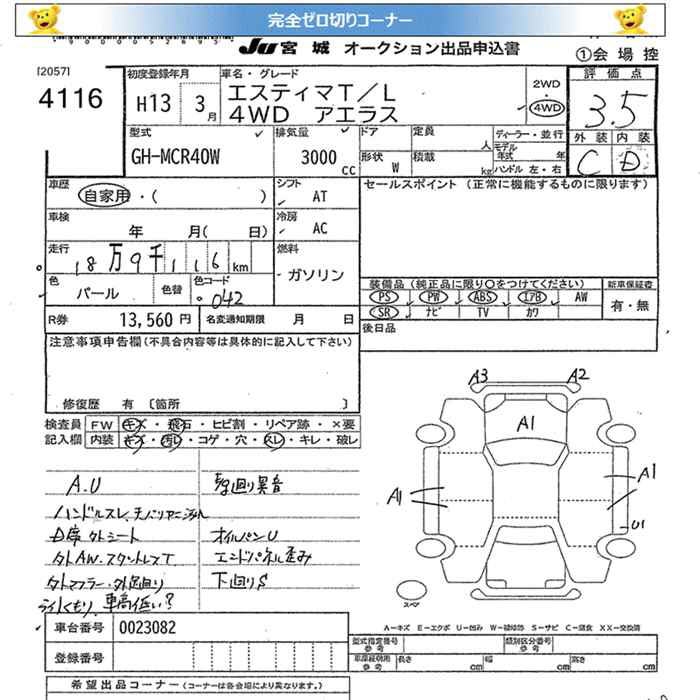 完全ゼロ切りコーナー
JU宮城 オークション出品申込書
①会場控
[2057]
4116
初度登録年月
H13 3月
車名・グレード
エスティマT/L
4WD アエラス
2WD
・
4WD
評価点
3.5
外装 内装
C D
型式
GH-MCR40W
排気量
3000 cc
ドア
形状 W
定員 人
積載 kg
ディーラー・並行
モデル年式 年
ハンドル 左・右
車歴
自家用・( )
シフト
AT
セールスポイント (正常に機能するものに限ります)
車検
年 月( 日)
冷房
AC
走行
18万9千116km
燃料
ガソリン
色
パール
色替
色コード
042
装備品 (純正品に限り○をつけてください)
PS PW ABS エアB AW
SR ナビ TV カワ
新車保証書
有・無
R券 13,560円
名変通知期限 月 日
後日品
注意事項申告欄(不具合内容等は具体的に記入して下さい)
修復歴 有 〔箇所 〕
検査員記入欄
FW キズ・飛石・ヒビ割・リペア跡・×要
内装 キズ・汚レ・コゲ・穴・スレ・キレ・破レ
A.U
ハンドルスレ、天バリヤニ汚れ
D席外シート
外AW.スタットレスT
外マフラー・外足回り
ライトくもり、車高低い?
撃回り異音
オイルパンU
エンドパネル歪み
下回りS
A3 A2
A1
A1
A1
U1
スペア
A-キズ E-エクボ U-凹み W-補修跡 S-サビ C-腐食 XX-交換済
車台番号 0023082
登録番号
型式指定番号 参考
類別区分番号 参考
車庫証明用 参考
長さ cm
幅 cm
高さ cm
希望出品コーナー (コーナーは各会場により異なります。)